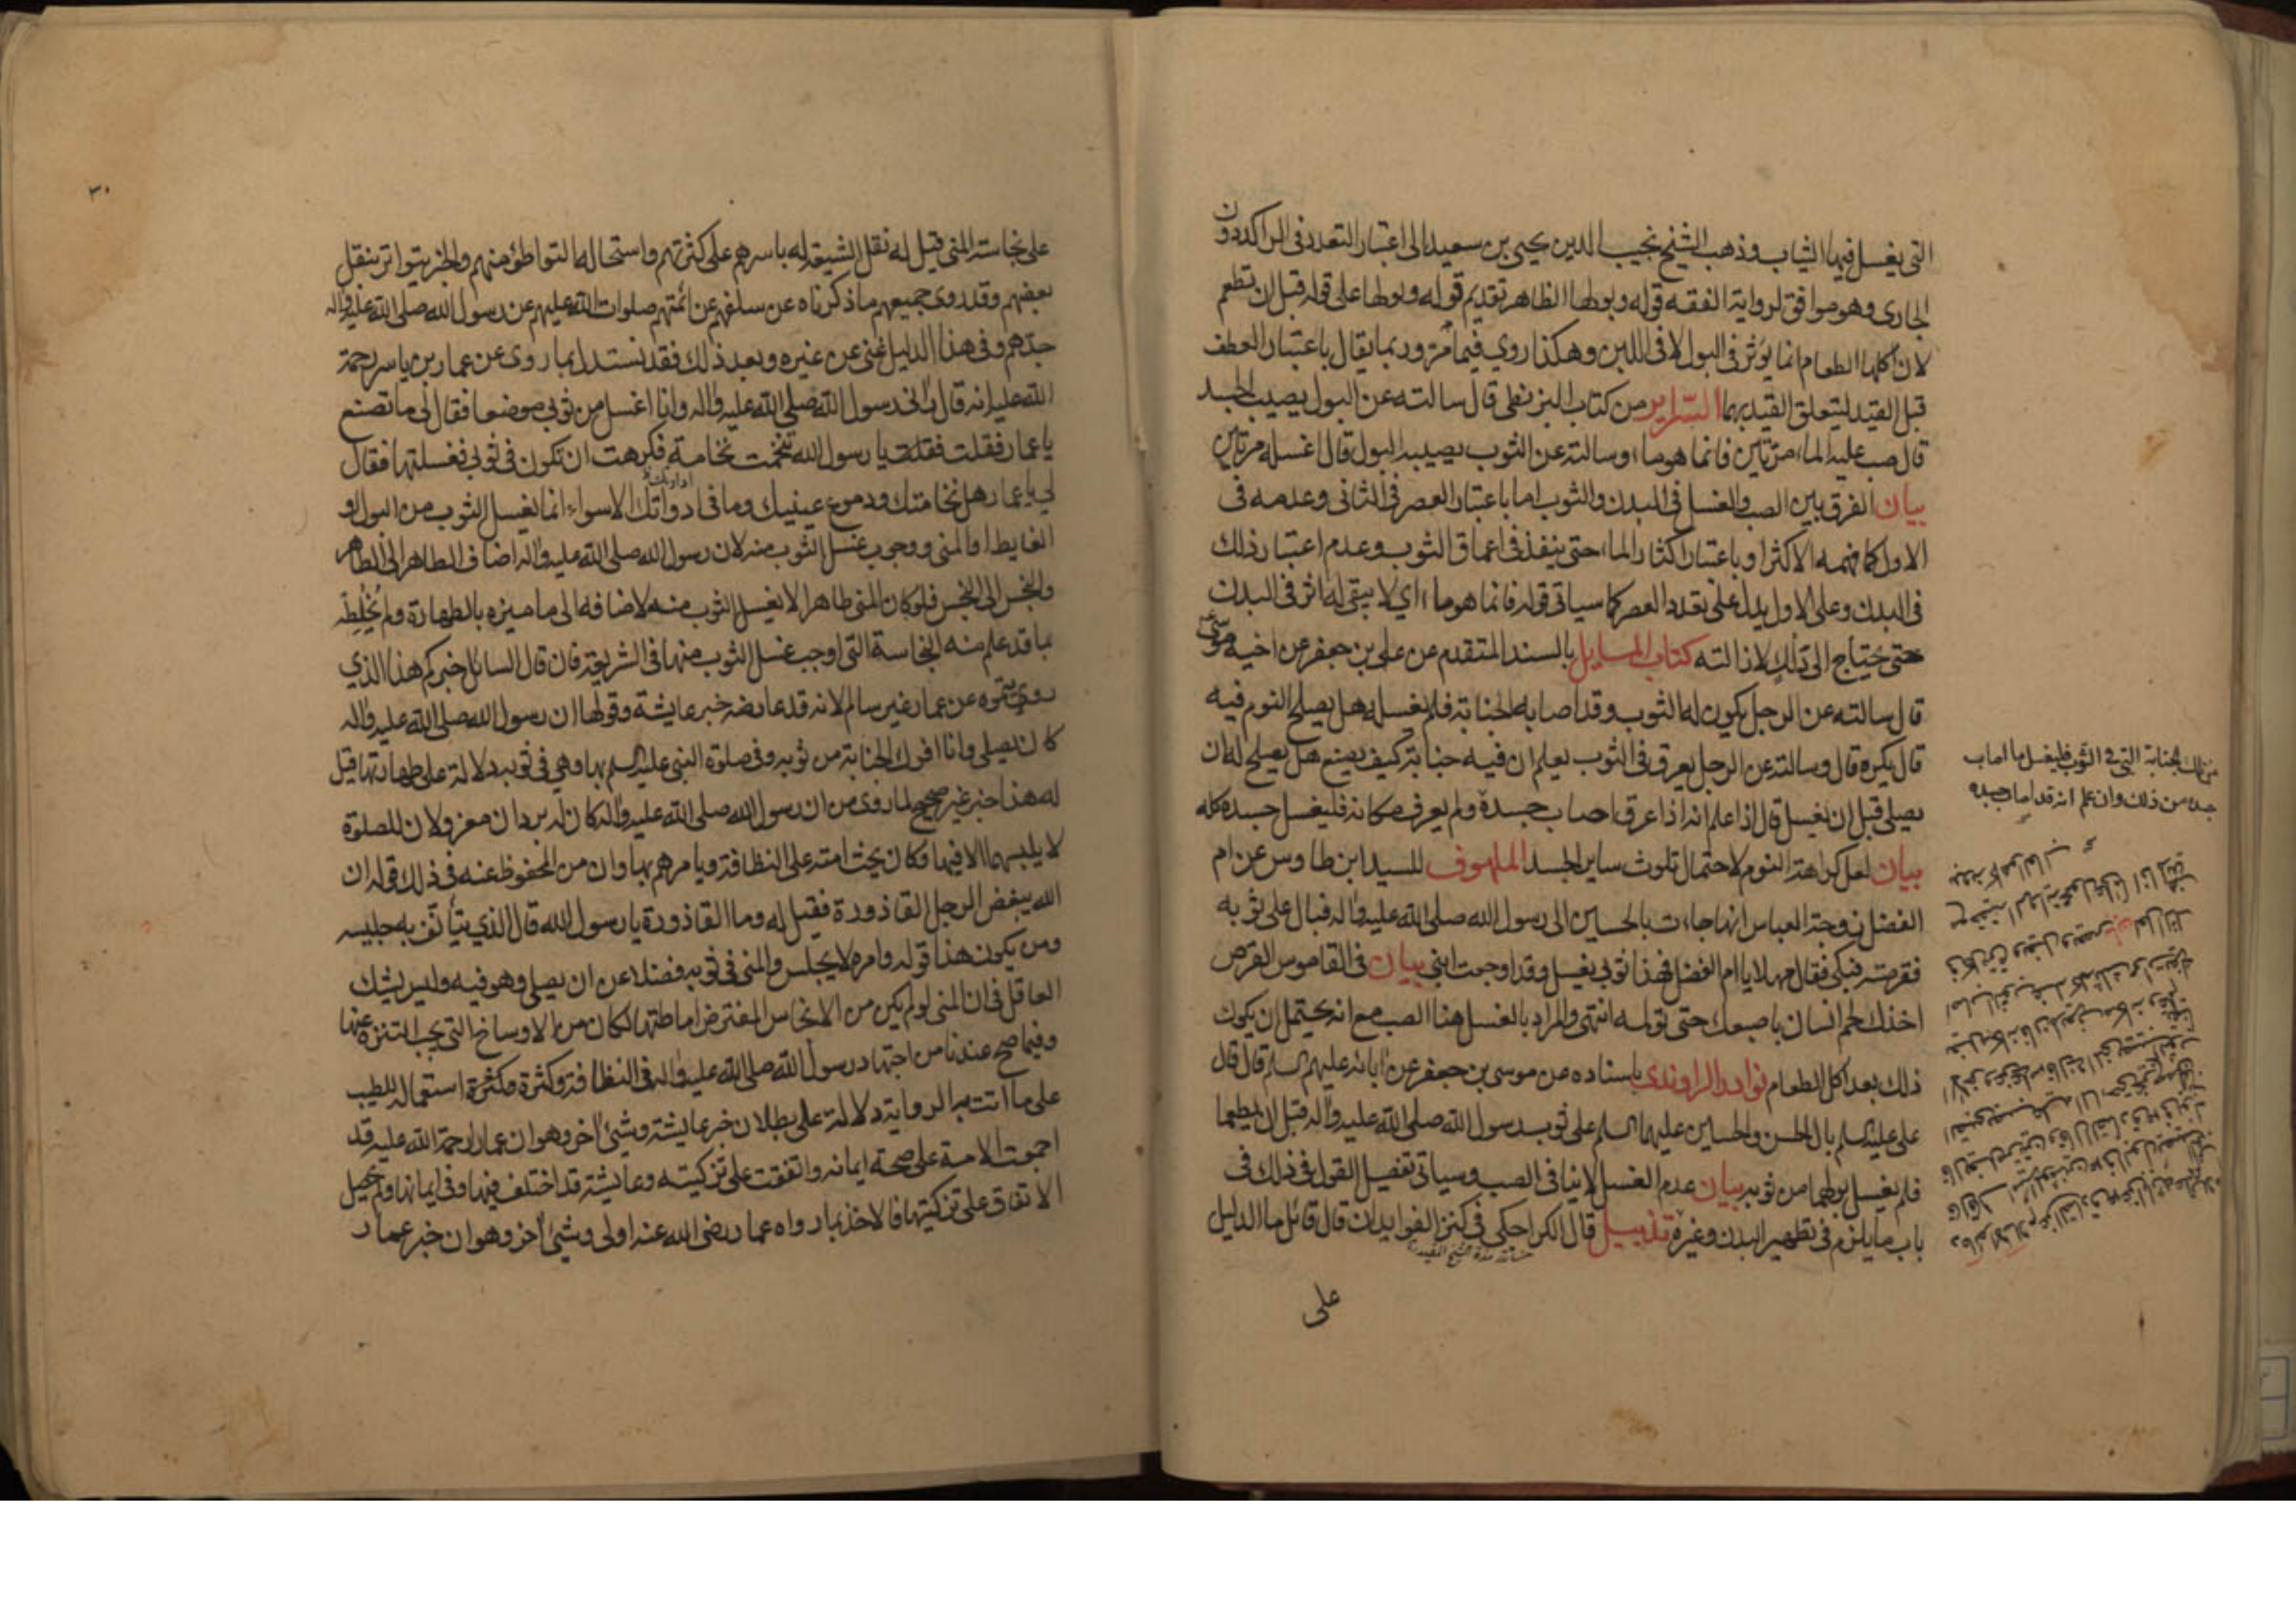 التي يغسل فيها الثياب وذهب الشيخ نجيب الدين يحيى بن سعيد الى اعتبار التعدد في الراكد دون
الجارى وهو موافق لرواية الفقه قوله وبوطها الظاهر تقديم قوله وبوطها على قوله قبل ان تطعم
لان اكلها الطعام انما يؤثر في البول لا في اللبن وهكذا روي فيما مر وربما يقال باعتبار العطف
قبل القيد ليتعلق القيد بهما السراير من كتاب البزنطي قال سالته عن البول يصيب الجسد
قال صب عليه الماء مرتين فانما هو ماء وسالته عن الثوب يصيبه البول قال اغسله مرتين
بيان الفرق بين الصب والغسل في البدن والثوب اما باعتبار العصر في الثاني وعدمه في
الاول كما فهمه الاكثر او باعتبار اكثار الماء حتى ينفذ في اعماق الثوب وعدم اعتبار ذلك
في البدن وعلى الاول يدل على تعدد العصر كما سياتي قوله فانما هو ماء اي لا يبقى له اثر في البدن
حتى يحتاج الى ذلك لازالته كتاب المسايل بالسند المتقدم عن علي بن جعفر عن اخيه موسى
قال سالته عن الرجل يكون له الثوب وقد اصابه الجنابة فلم يغسله هل يصلح النوم فيه
قال يكره قال وسالته عن الرجل يعرق في الثوب يعلم ان فيه جنابة كيف يصنع هل يصلح له ان
يصلى قبل ان يغسل قال اذا علم انه اذا عرق اصاب جسده ولم يعرف مكانه فليغسل جسده كله
بيان لعل كراهة النوم لاحتمال تلوث ساير الجسد الملهوف للسيد ابن طاوس عن ام
الفضل زوجة العباس انها جاءت بالحسين الى رسول الله صلى الله عليه واله فبال على ثوبه
فقرصته فبكى فقال مهلا يا ام الفضل فهذا ثوبي يغسل وقد اوجعت ابني بيان في القاموس القرص
اخذك لحم انسان باصبعك حتى تولمه انتهى والمراد بالغسل هنا الصب مع انه يحتمل ان يكون
ذلك بعد اكل الطعام نوادر الراوندي باسناده عن موسى بن جعفر عن ابائه عليهم السلم قال قال
علي عليه السلم بال الحسن والحسين عليهما السلم على ثوب رسول الله صلى الله عليه واله قبل ان يطعما
فلم يغسل بولهما من ثوبه بيان عدم الغسل لا ينافي الصب وسياتي تفصيل القول في ذلك في
باب ما يلزم في تطهير البدن وغيره تذييل قال الكراجكي في كنز الفوايد ان قال قائل ما الدليل
على
من تلك الجنابة التي في الثوب فليغسل ما اصاب
جسده من ذلك وان علم انه قد اصاب جسده
٣٠
على نجاسة المني قيل له نقل الشيعة له باسرهم على كثرتهم واستحالة التواطؤ منهم والخبر يتواتر بنقل
بعضهم وقد روى جميعهم ما ذكرناه عن سلفهم عن ائمتهم صلوات الله عليهم عن رسول الله صلى الله عليه واله
جدهم وفي هذا الدليل غنى عن غيره وبعد ذلك فقد نستدل بما روى عن عمار بن ياسر رحمة
الله عليه انه قال راني رسول الله صلى الله عليه واله وانا اغسل من ثوبي موضعا فقال لي ما تصنع
يا عمار فقلت فقلت يا رسول الله تنخمت نخامة فكرهت ان تكون في ثوبي فغسلتها فقال
لي يا عمار هل نخامتك ودموع عينيك وما في ادواتك الا سواء انما يغسل الثوب من البول او
الغايط او المني ووجوب غسل الثوب منه لان رسول الله صلى الله عليه واله اضاف الطاهر الى الطاهر
والنجس الى النجس فلو كان المني طاهرا لا يغسل الثوب منه لاضافه الى ما ميزه بالطهارة ولم يخلطه
بما قد علم منه النجاسة التي اوجب غسل الثوب منها في الشريعة فان قال السائل خبركم هذا الذي
رويتموه عن عمار غير سالم لانه قد عارضه خبر عايشة وقولها ان رسول الله صلى الله عليه واله
كان يصلي وانا افرك الجنابة من ثوبه وفي صلوة النبي عليه السلم بها وهي في ثوبه دلالة على طهارتها قيل
له هذا خبر غير صحيح لما روى من ان رسول الله صلى الله عليه واله كان له بردان معزولان للصلوة
لا يلبسهما الا فيها وكان يحث امته على النظافة ويامرهم بها وان من المحفوظ عنه في ذلك قوله ان
الله يبغض الرجل القاذورة فقيل له وما القاذورة يا رسول الله قال الذي يتأنف به جليسه
ومن يكون هذا قوله وامره لا يجلس والمني في ثوبه فضلا عن ان يصلي وهو فيه وليس يشك
العاقل في ان المني لو لم يكن من الانجاس المفترض اماطتها لكان من الاوساخ التي يجب التنزه عنها
وفيما صح عندنا من اجتهاد رسول الله صلى الله عليه واله في النظافة وكثرة استعماله للطيب
على ما اتت به الرواية دلالة على بطلان خبر عايشة وشيء اخر وهو ان عمارا رحمة الله عليه قد
اجمعت الامة على صحة ايمانه واتفقت على تزكيته وعايشة قد اختلف فيها وفي ايمانها ولم يحصل
الاتفاق على تزكيتها فالاخذ بما رواه عمار رضى الله عنه اولى وشيء اخر وهو ان خبر عمار